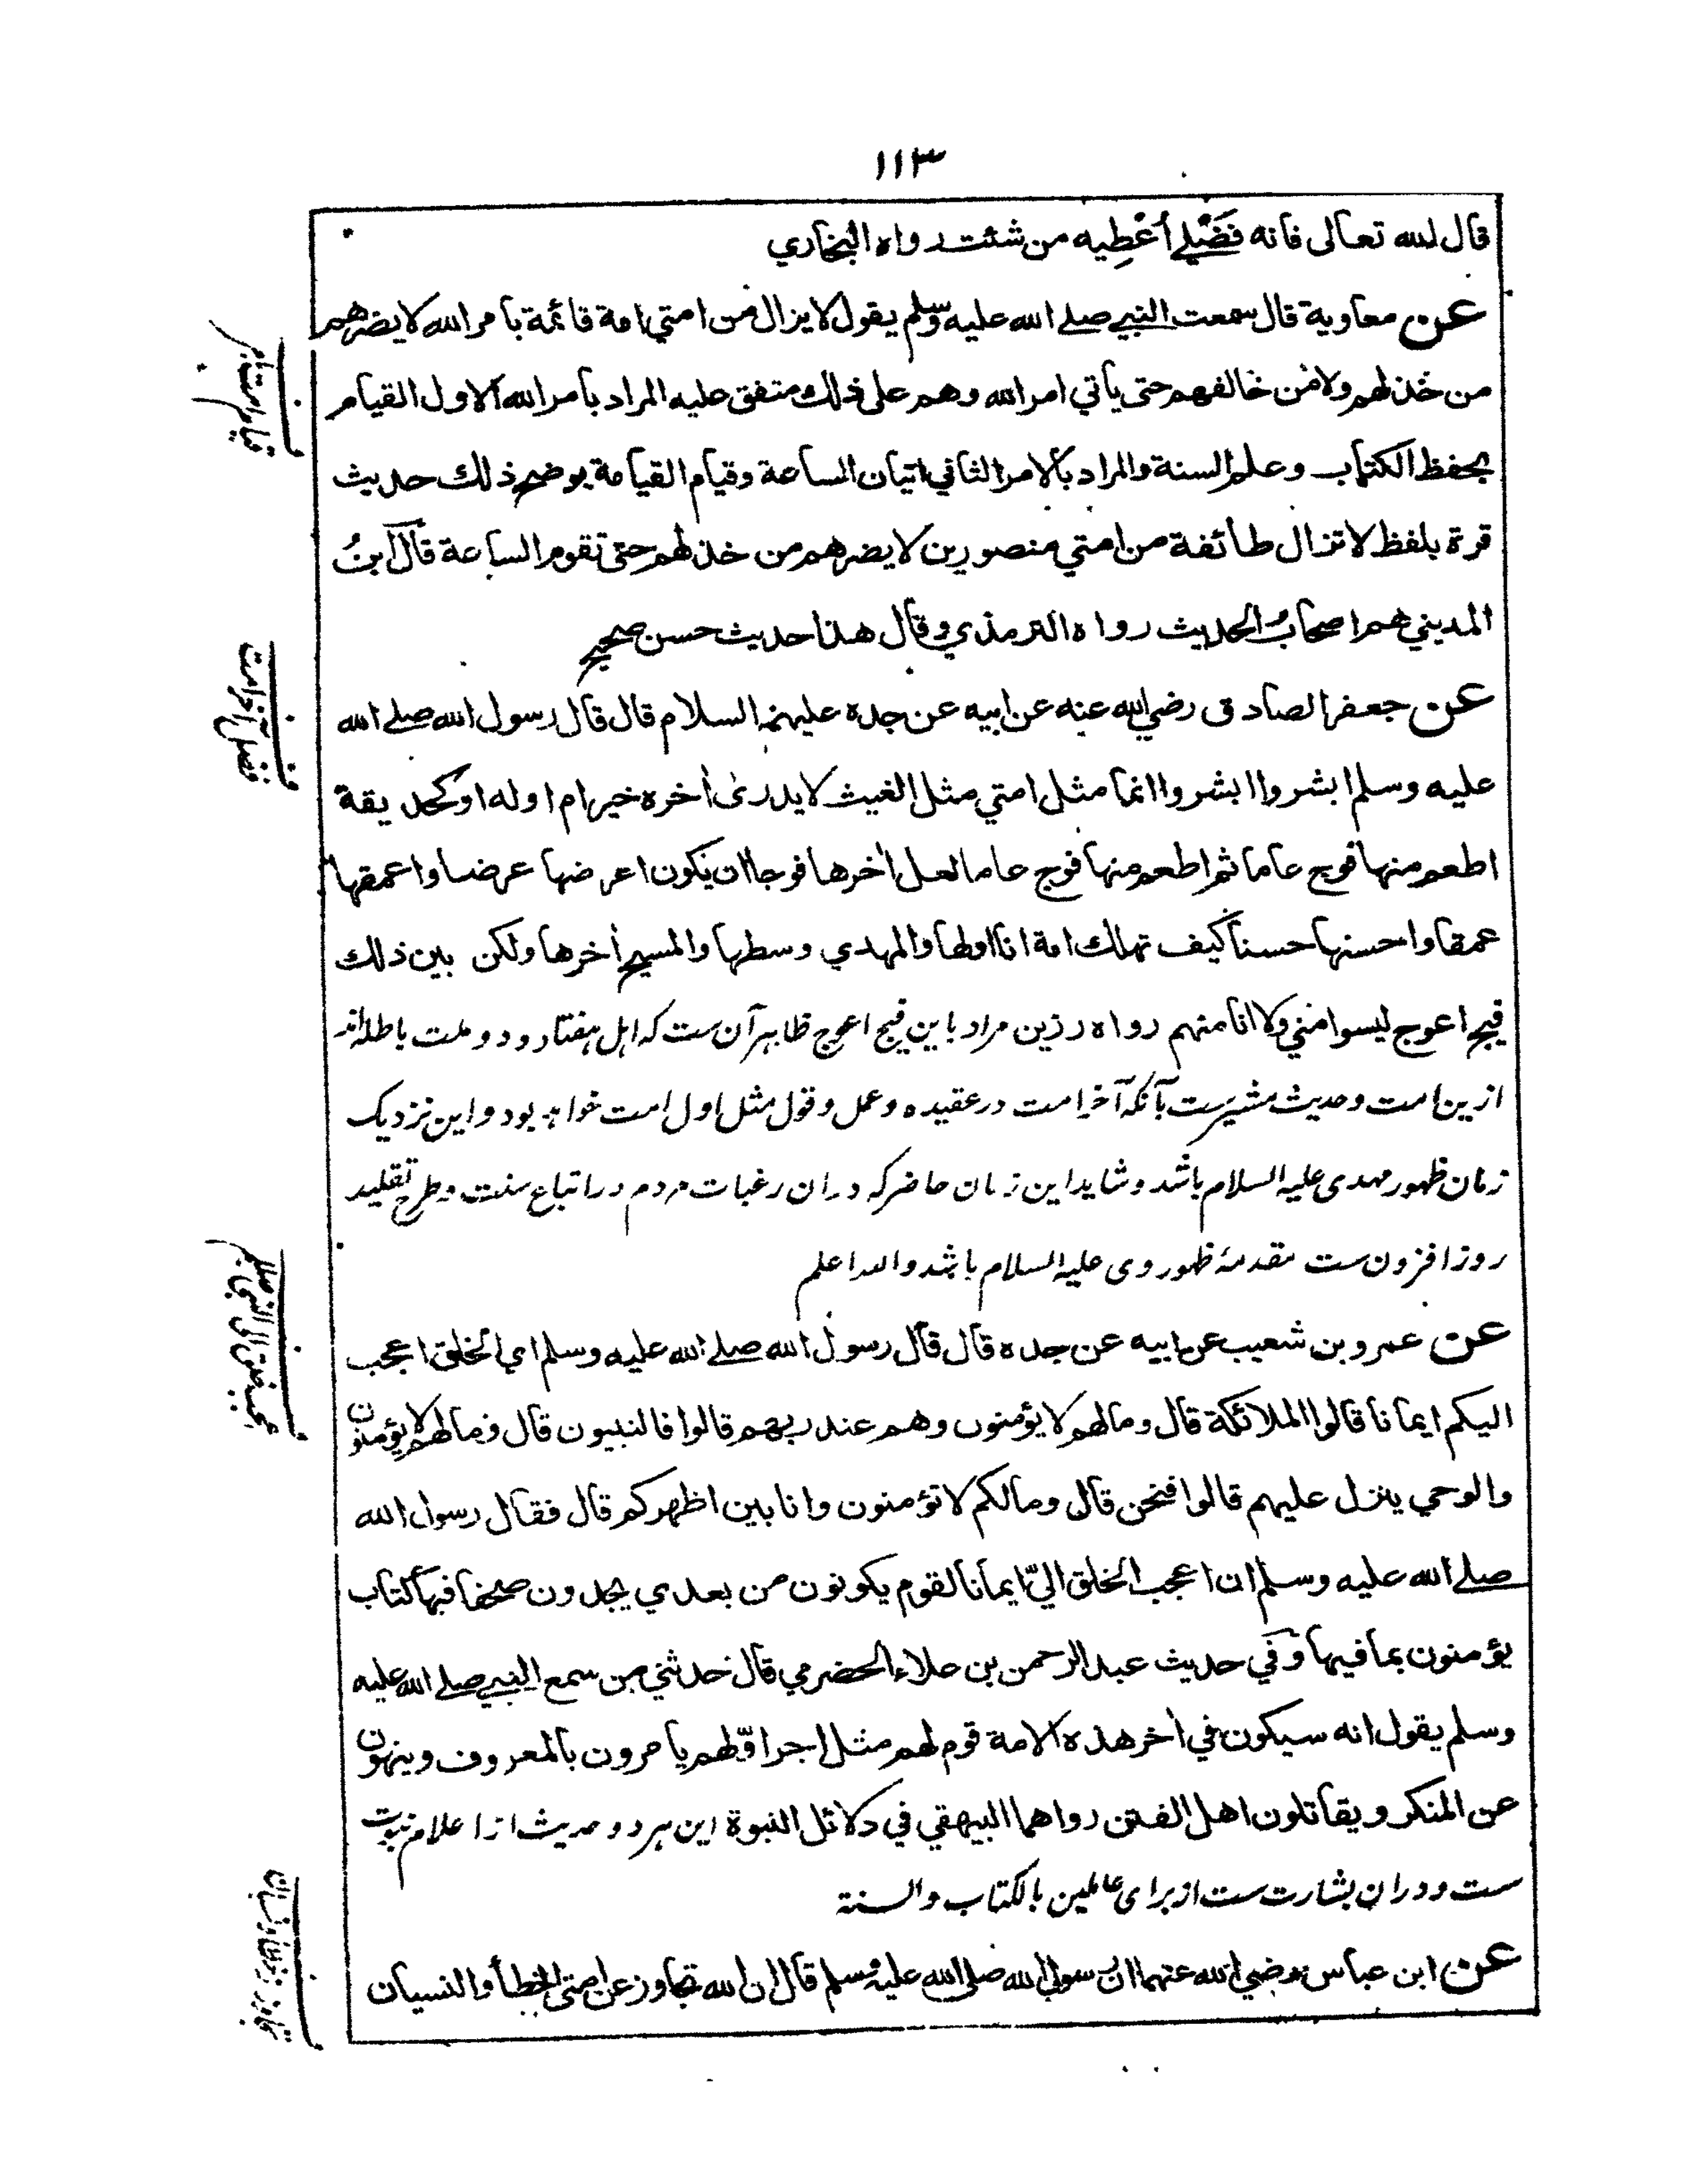 ١١٣
قال الله تعالى فانه فَضْلِي أُعْطِيه من شئت رواه البخاري
عن معاوية قال سمعت النبي صلى الله عليه وسلم يقول لا يزال من امتي امة قائمة بامر الله لا يضرهم
من خذلهم ولا من خالفهم حتى ياتي امر الله وهم على ذلك متفق عليه المراد بامر الله الاول القيام
بحفظ الكتاب وعلم السنة والمراد بالامر الثاني اتيان الساعة وقيام القيامة يوضح ذلك حديث
قرة بلفظ لا تزال طائفة من امتي منصورين لا يضرهم من خذلهم حتى تقوم الساعة قال ابنُ
المديني هم اصحابُ الحديث رواه الترمذي وقال هذا حديث حسن صحيح
عن جعفر الصادق رضي الله عنه عن ابيه عن جده عليهم السلام قال قال رسول الله صلى الله
عليه وسلم ابشروا ابشروا انما مثل امتي مثل الغيث لا يدرى أخره خير ام اوله او كحديقة
اطعم منها فوج عاما ثم اطعم منها فوج عاما لعل أخرها فوجا ان يكون اعرضها عرضا واعمقها
عمقا واحسنها حسنا كيف تهلك امة انا اولها والمهدي وسطها والمسيح أخرها ولكن بين ذلك
فيج اعوج ليسوا مني ولا انا منهم رواه رزين مراد باين فيج اعوج ظاهر آن ست که اهل هفتاد و دو ملت باطله اند
ازین امت و حدیث مشیر ست بآنکه آخر امت در عقیده و عمل و قول مثل اول امت خواهد بود و این نزدیک
زمان ظهور مهدی علیه السلام باشد و شاید این زمان حاضر که دران رغبات مردم در اتباع سنت و طرح تقلید
روز افزون ست مقدمهٔ ظهور وی علیه السلام باشد والله اعلم
عن عمرو بن شعيب عن ابيه عن جده قال قال رسول الله صلى الله عليه وسلم اي الخلق اعجب
اليكم ايمانا قالوا الملائكة قال وما لهم لا يؤمنون وهم عند ربهم قالوا فالنبيون قال وما لهم لا يؤمنون
والوحي ينزل عليهم قالوا فنحن قال وما لكم لا تؤمنون وانا بين اظهركم قال فقال رسول الله
صلى الله عليه وسلم ان اعجب الخلق اليّ ايمانا لقوم يكونون من بعدي يجدون صحفا فيها كتاب
يؤمنون بما فيها وفي حديث عبد الرحمن بن علاء الحضرمي قال حدثني من سمع النبي صلى الله عليه
وسلم يقول انه سيكون في أخر هذه الامة قوم لهم مثل اجر اوّلهم يامرون بالمعروف وينهون
عن المنكر ويقاتلون اهل الفتن رواهما البيهقي في دلائل النبوة این هر دو حدیث از اعلام نبوت
ست و دران بشارت ست از برای عاملین بالکتاب والسنة
عن ابن عباس رضي الله عنهما ان رسول الله صلى الله عليه وسلم قال ان الله تجاوز عن امتي الخطأ والنسيان
فضل آخر امت
تجاوز از خطا و نسیان